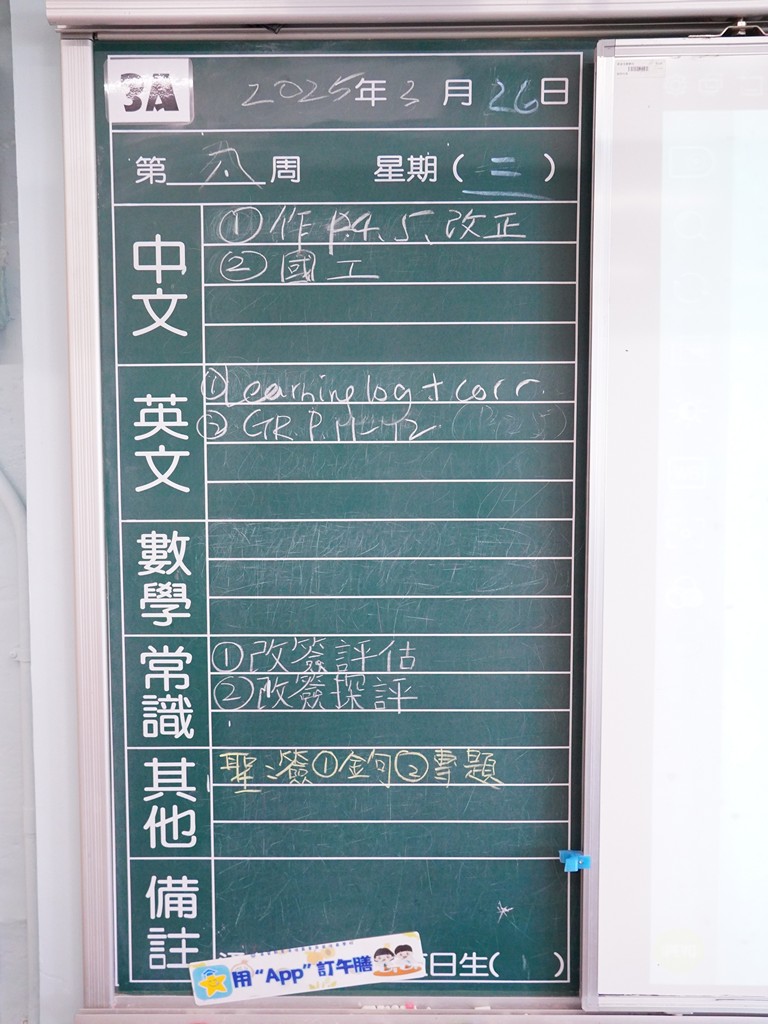 3A 2025年3月26日
第六周 星期(二)
中文
①作 P.4、5、改正
②國工
英文
①Learning log + corr.
② GR P.11-12
數學
常識
①改簽評估
②改簽探評
其他
聖:簽①金句②專題
備註
用“App”訂午膳
日生( )